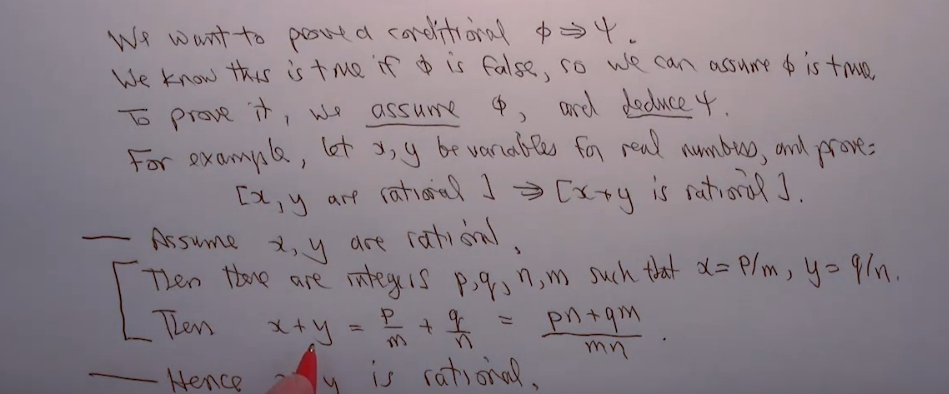 We want to prove a conditional φ ⇒ Ψ.
We know this is true if φ is false, so we can assume φ is true.
To prove it, we assume φ, and deduce Ψ.
For example, let x, y be variables for real numbers, and prove:
[x, y are rational] ⇒ [x+y is rational].
— Assume x, y are rational.
Then there are integers p, q, n, m such that x = p/m, y = q/n.
Then x+y = p/m + q/n = (pn+qm)/mn.
— Hence y is rational.